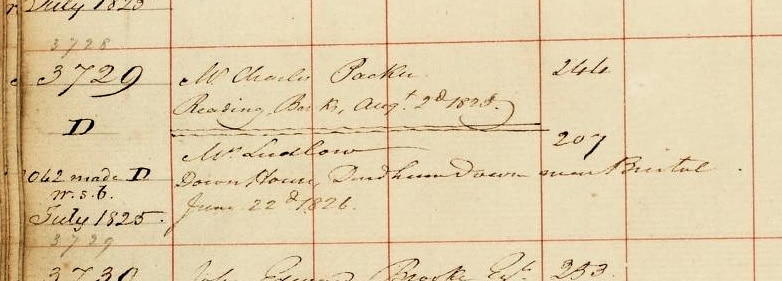 July 1825
3728
3729 Mr. Charles Packer 244
Reading Berks, Augt. 2d 1825.
D
Mr. Ludlow 207
062 made D Down House, Durdham Down near Bristol.
w.s.b. June 22d 1826.
July 1825.
3729
3730 John Edward Brooke Esqr. 253